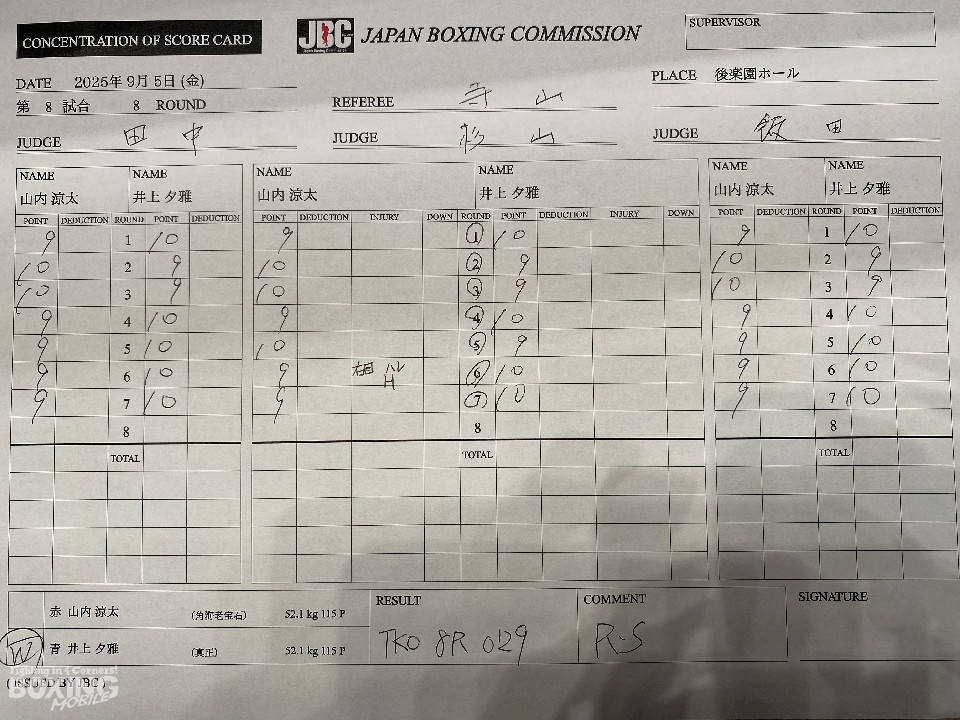 CONCENTRATION OF SCORE CARD
JBC JAPAN BOXING COMMISSION
SUPERVISOR
DATE 2025年 9月 5日 (金)
PLACE 後楽園ホール
第 8 試合 8 ROUND
REFEREE 寺山
JUDGE 田中 JUDGE 杉山 JUDGE 飯田
NAME NAME NAME NAME NAME NAME
山内 涼太 井上 夕雅 山内 涼太 井上 夕雅 山内 涼太 井上 夕雅
POINT DEDUCTION ROUND POINT DEDUCTION POINT DEDUCTION INJURY DOWN ROUND POINT DEDUCTION INJURY DOWN POINT DEDUCTION ROUND POINT DEDUCTION
9 1 10 9 1 10 9 1 10
10 2 9 10 2 9 10 2 9
10 3 9 10 3 9 10 3 9
9 4 10 9 4 10 9 4 10
9 5 10 10 5 9 9 5 10
9 6 10 9 6 10 9 6 10
9 7 10 9 7 10 9 7 10
8 8 8
TOTAL TOTAL TOTAL
赤 山内 涼太 (角海老宝石) 52.1 kg 115 P
青 井上 夕雅 (真正) 52.1 kg 115 P
W
RESULT
TKO 8R 0'29
COMMENT
R.S
SIGNATURE
( ISSUED BY JBC )
Fighting in 4 Corners!
BOXING
MOBILE